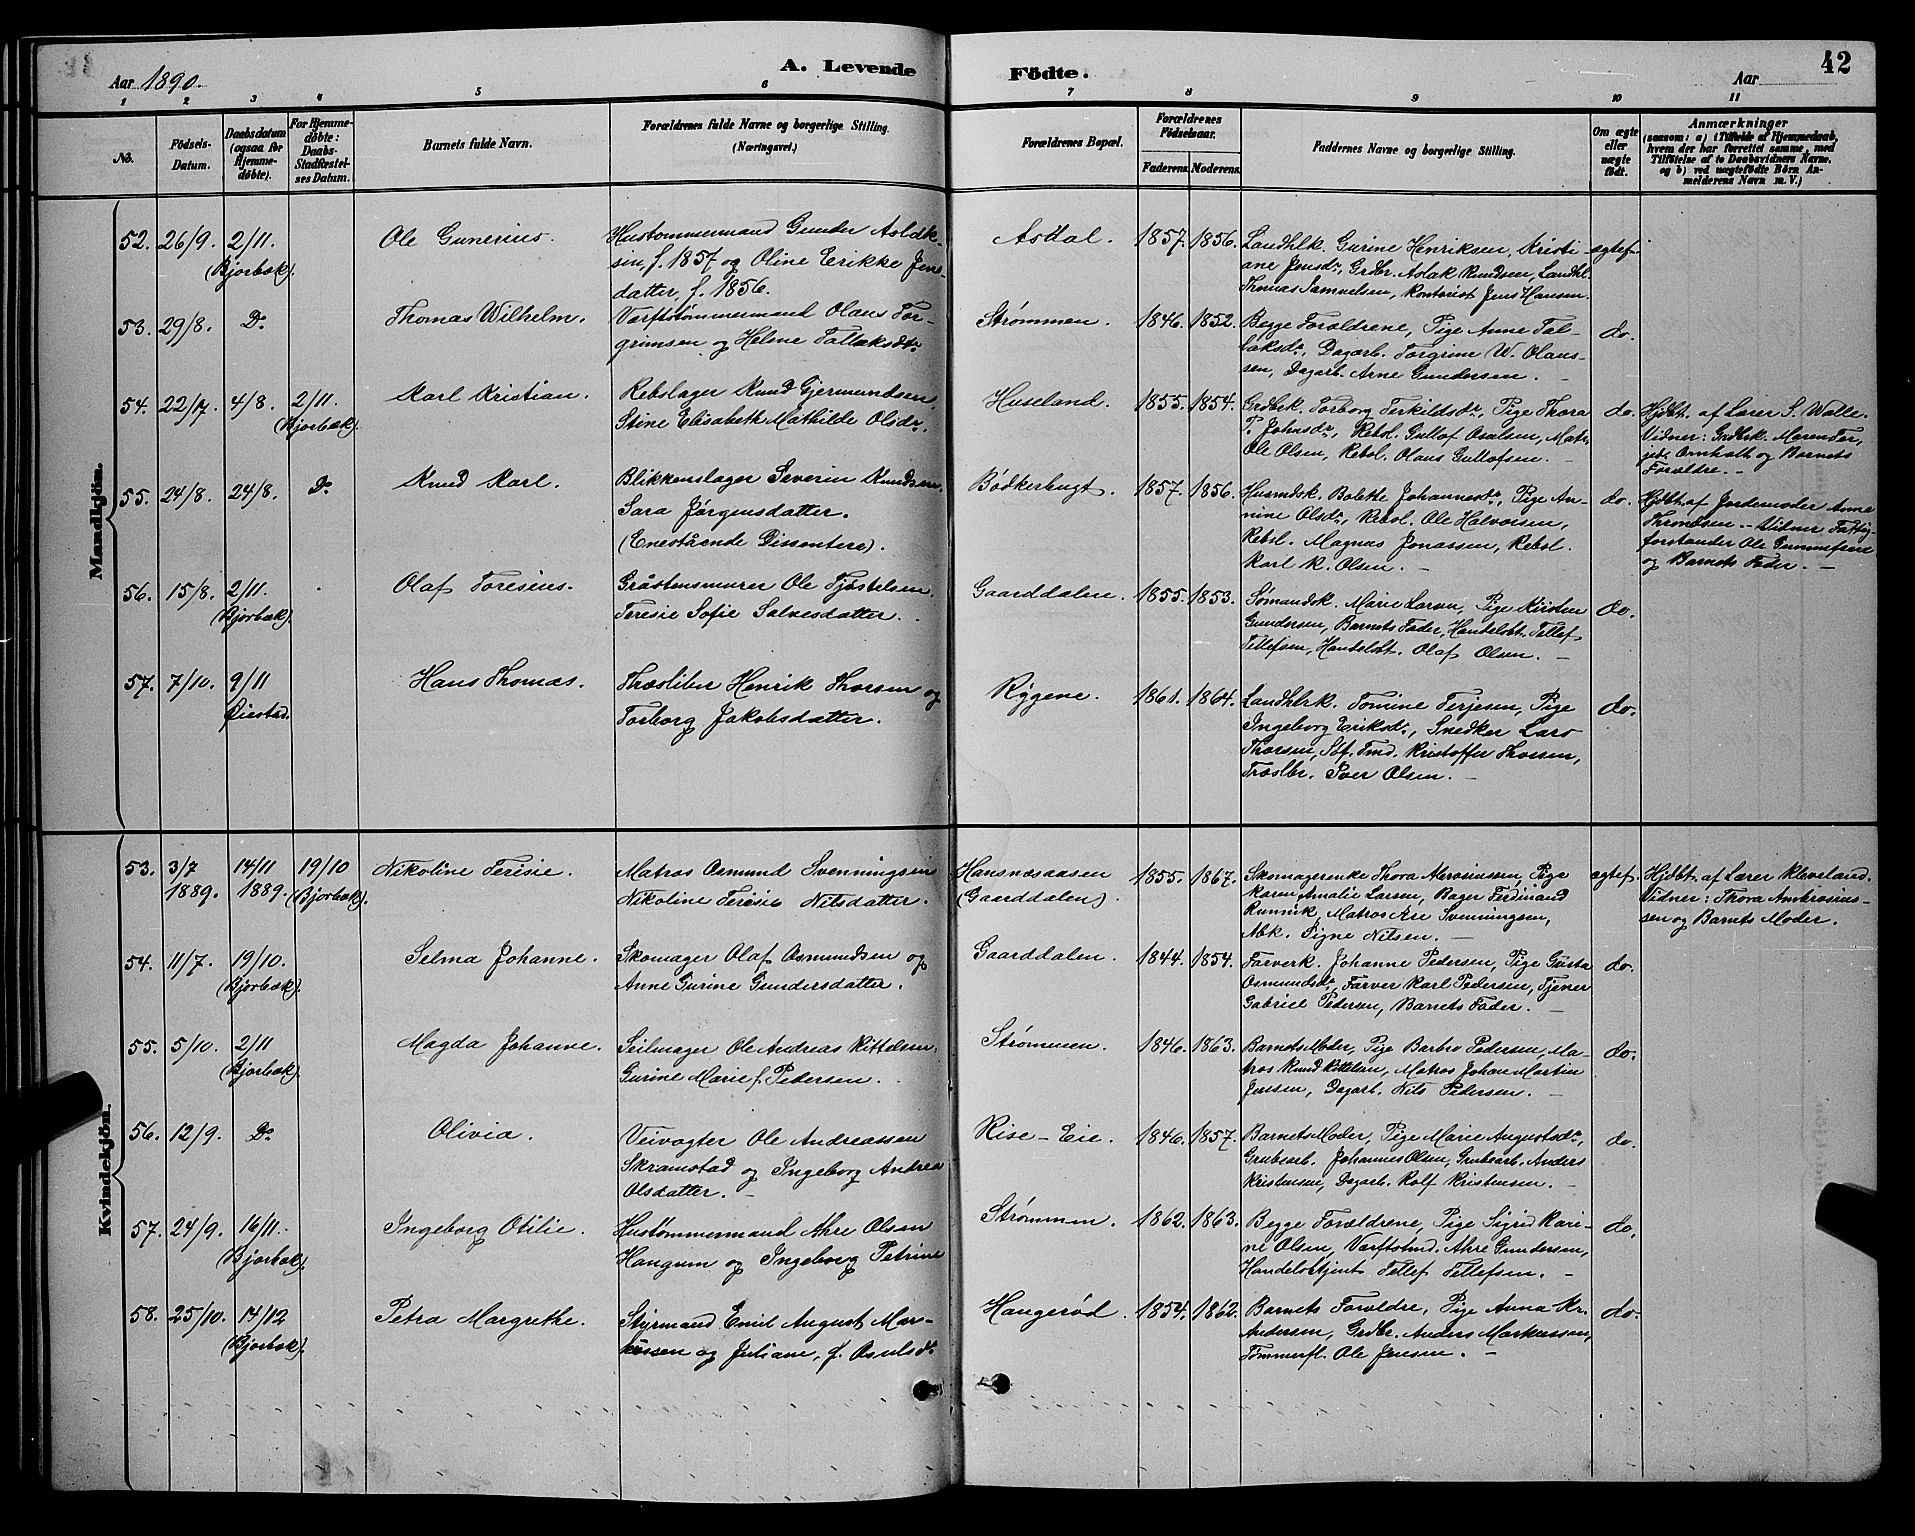 Aar 1890.
A. Levende Födte.
Aar
42
1 2 3 4 5 6 7 8 9 10 11
No.
Födsels-Datum.
Daabsdatum (ogsaa for Hjemme-döbte).
For Hjemme-döbte: Daabs-Stadfæstel-ses Datum.
Barnets fulde Navn.
Forældrenes fulde Navne og borgerlige Stilling.
(Næringsvei.)
Forældrenes Bopæl.
Forældrenes Födselsaar.
Faderens. Moderens.
Faddernes Navne og borgerlige Stilling.
Om ægte eller uægte födt.
Anmærkninger
(saasom: a) i Tilfælde af Hjemmedaab, hvem der har forrettet samme, med Tilföielse af to Daabsvidners Navne, og b) ved uægtefödte Börn An-melderens Navn m. V.)
Mandkjön.
52. 26/9. 2/11. (Bjorbæk). Ole Gunerius.
Hustømmermand Gunder Aslak-
sen, f. 1857 og Oline Erikke Jens-
datter, f. 1856.
Asdal. 1857. 1856.
Landhlk. Gurine Henriksen, Kristi-
ane Jensdr, Grdbr. Aslak Knudsen, Landhl.
Thomas Samuelsen, Kontorist Jens Hansen.
ægtef.
53. 29/8. Do Thomas Wilhelm.
Værftstømmermand Olaus Tor-
grimsen og Helene Tallaksdr.
Strømmen. 1846. 1852.
Begge Forældrene, Pige Anne Tal-
laksdr, Dagarb. Torgrim W. Olaus-
sen, Dagarb. Arne Gundersen.
do.
54. 22/7. 4/8. 2/11. (Bjorbæk). Karl Kristian.
Rebslager Knud Gjermundsen,
Stine Elisabeth Mathilde Olsdr.
Huseland. 1855. 1854.
Grdbrk. Torborg Terkildsdr, Pige Thora
T. Johnsdr, Rebsl. Gullof Osulsen, Matr.
Ole Olsen, Rebsl. Olaus Gullofsen.
do.
Hjdbt. af Lærer S. Walle.
Vidner: Grdbrk. Maren Ter-
jete Omholt og Barnets
Forældre.
55. 24/8. 24/8. Do Knud Karl.
Blikkenslager Severin Knudsen,
Sara Jørgensdatter.
(Enestående Dissentere).
Bødkerbugt. 1857. 1856.
Husmdsk. Bolette Johannesdr, Pige An-
nine Olsdr, Rebsl. Ole Halvorsen,
Rebsl. Magnus Jonassen, Rebsl.
Karl K. Olsen.
do.
Hjdbt. af Jordemoder Anne
Throndsen. Vidner Fattig-
forstander Ole Gummesen
og Barnets Fader.
56. 15/8. 2/11. (Bjorbæk). Olaf Toresius.
Gråstensmurer Ole Tjøstelsen,
Teresie Sofie Salvesdatter.
Gaarddalen. 1855. 1853.
Sømandsk. Marie Larsen, Pige Kirsten
Gundersen, Barnets Fader, Handelsbt. Tellef
Tellefsen, Handelsbt. Olaf Olsen.
do.
57. 7/10. 9/11 Øiestad. Hans Thomas.
Træsliber Henrik Thorsen og
Torborg Jakobsdatter.
Rygene. 1861. 1864.
Landhlrk. Tomine Terjesen, Pige
Ingeborg Eriksdr, Snedker Lars
Thorsen, Søf. Tmd. Kristoffer Thorsen,
Træslbr. Peer Olsen.
do.
Kvindekjön.
53. 3/7 1889. 14/11 1889. 19/10 (Bjorbæk). Nikoline Teresie.
Matros Osmund Svenningsen
Nikoline Teresie Nilsdatter.
Hansnæsaasen
(Gaarddalen).
1855. 1867.
Skomagerenke Thora Ambrosiussen, Pige
Karen Amalie Larsen, Bager Ferdinand
Runnik, Matros Are Svenningsen,
Abk. Signe Nilsen.
ægtef.
Hjdbt. af Lærer Kleveland.
Vidner: Thora Ambrosius-
sen og Barnets Moder.
54. 11/7. 19/10. (Bjorbæk). Selma Johanne.
Skomager Olaf Osmundsen og
Anne Gurine Gundersdatter.
Gaarddalen. 1844. 1854.
Farverk. Johanne Pedersen, Pige Gusta
Osmundsdr, Farver Karl Pedersen, Tjener
Gabriel Pedersen, Barnets Fader.
do.
55. 5/10. 2/11 (Bjorbæk). Magda Johanne.
Seilmager Ole Andreas Kittelsen,
Gurine Marie f. Pedersen.
Strømmen. 1846. 1863.
Barnets Moder, Pige Barbro Pedersen, Ma-
tros Knud Kittelsen, Matros Johan Martin
Jenssen, Dagarb. Nils Pedersen.
do.
56. 12/9. Do Olivia.
Veivogter Ole Andreassen
Skramstad og Ingeborg Andrea
Olsdatter.
Rise-Eie. 1846. 1857.
Barnets Moder, Pige Marie Augustsdr,
Grubearb. Johannes Olsen, Grubearb. Anders
Kristensen, Dagarb. Rolf Kristensen.
do.
57. 24/9. 16/11. (Bjorbæk). Ingeborg Otilie.
Hustømmermand Ahre Olsen
Haugum og Ingeborg Petrine
Strømmen. 1862. 1863.
Begge Forældrene, Pige Sigrid Kari-
ne Olsen, Værftstmd. Ahre Gundersen,
Handelsbtjent Tellef Tellefsen.
do.
58. 25/10. 14/12 (Bjorbæk). Petra Margrethe.
Styrmand Emil August Mar-
kussen og Juliane, f. Osulsdr.
Haugerød. 1854. 1862.
Barnets Forældre, Pige Anna Kr.
Andersen, Grdbr. Anders Markussen,
Tømmerfl. Ole Jensen.
do.